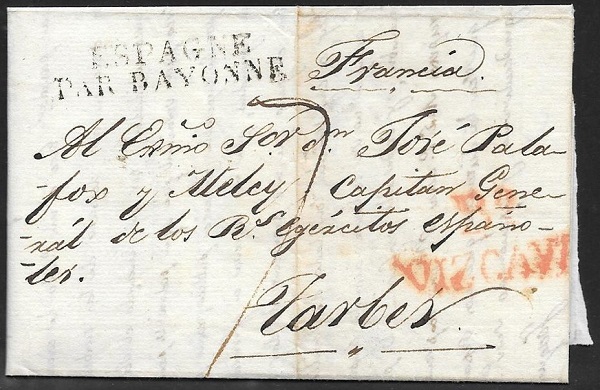 ESPAGNE
PAR BAYONNE
Francia.
Al Exmo Sor dn José Pala-
-fox y Melcy Capitan Gene-
-ral de los Rs. Egércitos españo-
-les.
Tarbes.
VIZCAYA